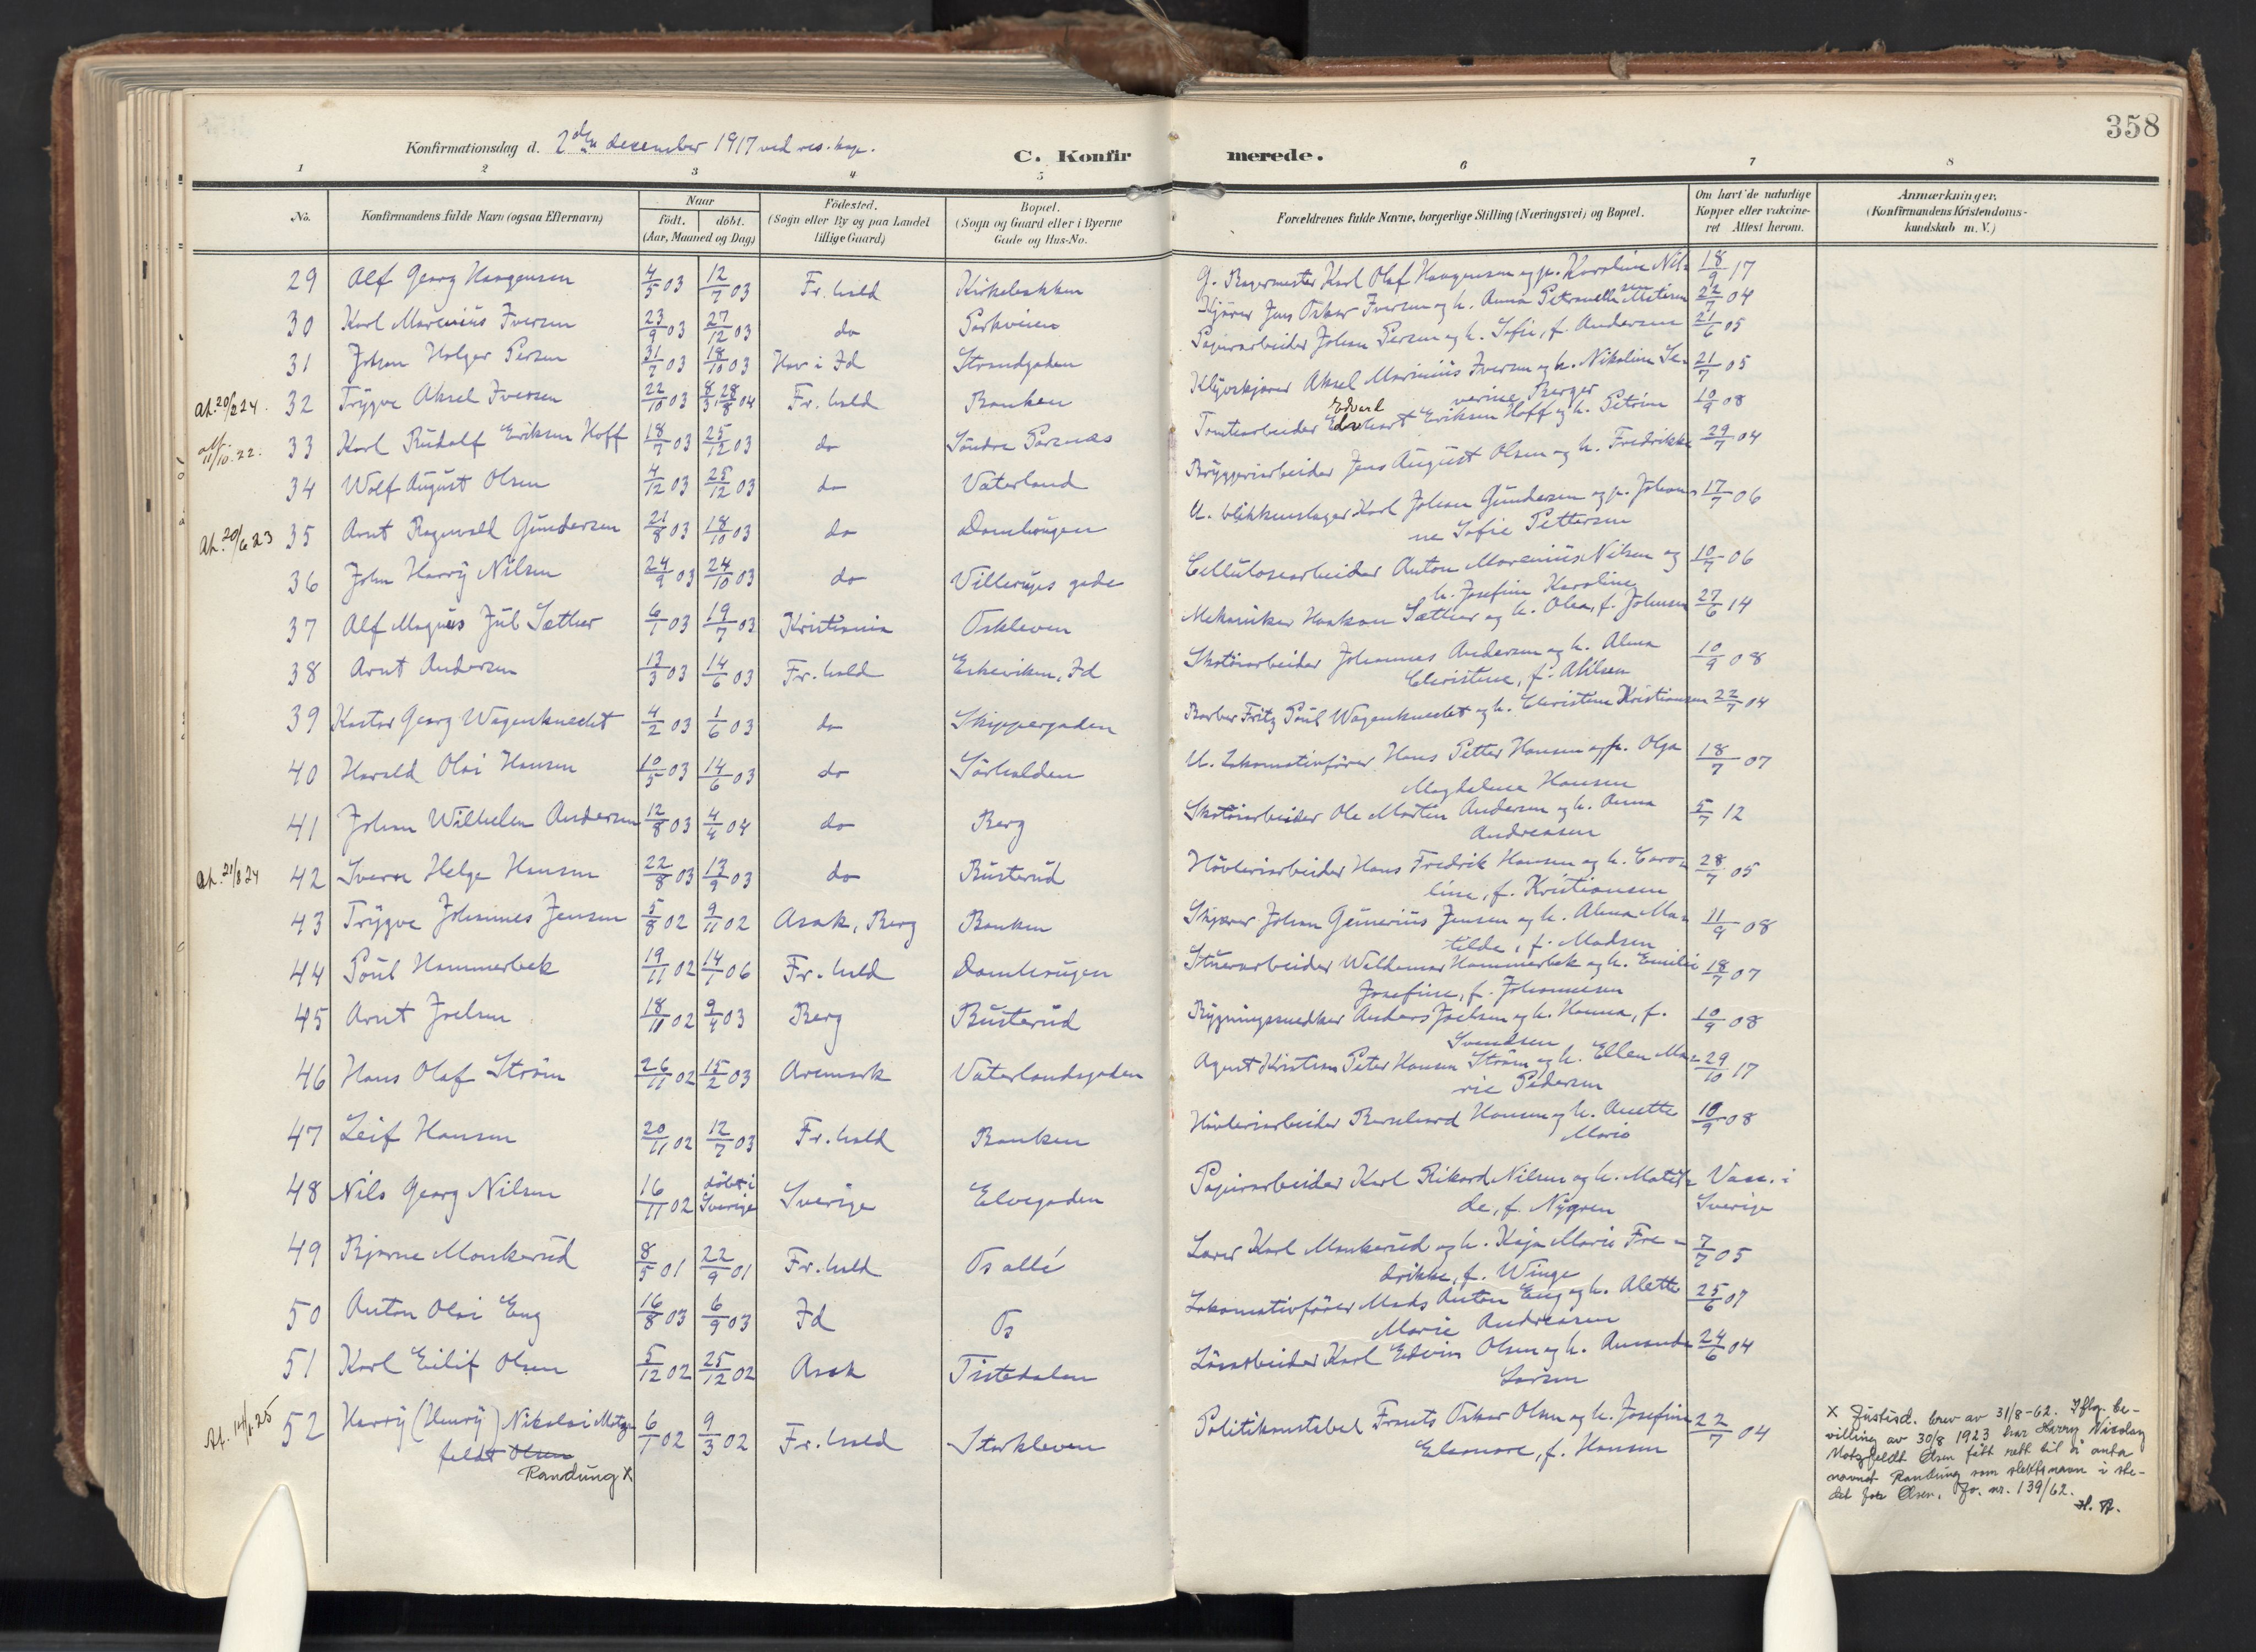 358
Konfirmationsdag d. 2den december 1917 ved res. kap.
C. Konfirmerede.
1 2 3 4 5 6 7 8
No. Konfirmandens fulde Navn (ogsaa Efternavn) Naar født. døbt. (Aar, Maaned og Dag) Födested. (Sogn eller By og paa Landet tillige Gaard) Bopæl. (Sogn og Gaard eller i Byerne Gade og Hus-No. Forældrenes fulde Navne, borgerlige Stilling (Næringsvei) og Bopæl. Om havt de naturlige Kopper eller vakcineret Attest herom. Anmærkninger. (Konfirmandens Kristendomskundskab m. V.)
29 Alf Georg Haagensen 4/5 03 12/7 03 Fr.hald Kirkebakken G. Bagermester Karl Olaf Haagensen og p. Karoline Nilsen 18/9 17
30 Karl Marenius Iversen 23/9 03 27/12 03 do Parkveien Kjører Jens Oskar Iversen og h. Anna Petronelle Matisen 22/7 04
31 Johan Holger Persen 31/7 03 18/10 03 Hov i Id Strandgaden Papirarbeider Johan Persen og h. Sofie, f. Andersen 21/6 05
At. 20/2 24. 32 Trygve Aksel Iversen 22/10 03 8/3, 28/8 04 Fr.hald Banken Klyvskjører Aksel Marinius Iversen og h. Nikoline Severine Berger 21/7 05
att. 11/10.22. 33 Karl Rudolf Eriksen Hoff 18/7 03 25/12 03 do Søndre Parsnæs Tomtearbeider Edvard Eriksen Hoff og h. Petrine 10/9 08
34 Wolf August Olsen 4/12 03 25/12 03 do Vaterland Bryggeriarbeider Jens August Olsen og h. Fredrikke 29/7 04
At. 20/6 23 35 Arnt Ragnvald Gundersen 21/8 03 18/10 03 do Damhaugen U. blikkenslager Karl Johan Gundersen og p. Johanne Sofie Pettersen 17/7 06
36 John Harry Nilsen 24/9 03 24/10 03 do Villersjes gade Cellulosearbeider Anton Marenius Nilsen og h. Josefine Karoline 10/7 06
37 Alf Magnus Jul Sæther 6/1 03 19/7 03 Kristiania Oskleven Mekaniker Haakon Sæther og h. Olea, f. Johnsen 27/6 14
38 Arnt Andersen 13/3 03 14/6 03 Fr.hald Eskeviken, Id Skotøiarbeider Johannes Andersen og h. Alma Christine, f. Ahlsen 10/9 08
39 Kastor Georg Wagenknecht 4/2 03 1/6 03 do Skippergaden Barber Fritz Paul Wagenknecht og h. Christine Kristiansen 22/7 04
40 Harald Olai Hansen 10/5 03 14/6 03 do Sørhalden U. Lokomotivfører Hans Petter Hansen og p. Olga Magdalena Hansen 18/7 07
41 Johan Wilhelm Andersen 12/8 03 4/4 04 do Berg Skotøiarbeider Ole Martin Andersen og h. Anna Andreasen 5/7 12
At. 21/8 24 42 Sverre Helge Hansen 22/8 03 13/9 03 do Busterud Høvleriarbeider Hans Fredrik Hansen og h. Caroline, f. Kristiansen 28/7 05
43 Trygve Johannes Jensen 5/8 02 9/11 02 Asak, Berg Banken Skjærer Johan Geinerius Jensen og h. Alma Matilde, f. Madsen 11/9 08
44 Paul Hammerbek 19/11 02 14/1 06 Fr.hald Damhaugen Stuerarbeider Waldemar Hammerbek og h. Emilie Josefine, f. Johannesen 18/7 07
45 Arnt Joelsen 18/11 02 9/4 03 Berg Busterud Bygningssnedker Anders Joelsen og h. Hanna, f. Svendsen 10/9 08
46 Hans Olaf Strøm 26/11 02 15/2 03 Aremark Vaterlandsgaden Agent Kristian Peter Hansen Strøm og h. Ellen Marie Pedersen 29/10 17
47 Leif Hansen 20/11 02 12/7 03 Fr.hald Banken Høvleriarbeider Bernhard Hansen og h. Anette Marie 10/9 08
48 Nils Georg Nilsen 16/11 02 døbt i Sverige Sverige Elvegaden Papirarbeider Karl Rikard Nilsen og h. Matilde, f. Nygren Vacc. i Sverige
49 Bjarne Monkerud 8/5 01 22/9 01 Fr.hald Os allé Lærer Karl Monkerud og h. Kaja Marie Fredrikke, f. Winge 7/7 05
50 Anton Olai Eng 16/8 03 6/9 03 Id Os Lokomotivfører Mads Anton Eng og h. Alette Marie Andreasen 25/6 07
51 Karl Eilif Olsen 5/12 02 25/12 02 Asak Tistedalen Løsarbeider Karl Edvin Olsen og h. Amanda Larsen 24/6 04
At. 14/1 25 52 Harry (Henry) Nikolai Motzfeldt Olsen Randung x 6/1 02 9/3 02 Fr.hald Storkleven Politikonstabel Frants Oskar Olsen og h. Josefine Eleonore, f. Hansen 22/7 04
x Justisd. brev av 31/8-62. Iflg. be-
villing av 30/8 1923 har Harry Nicolay
Motzfeldt Olsen fått rett til å anta
navnet Randung som slektsnavn i ste-
det for Olsen. Jo. nr. 139/62.
H. A.